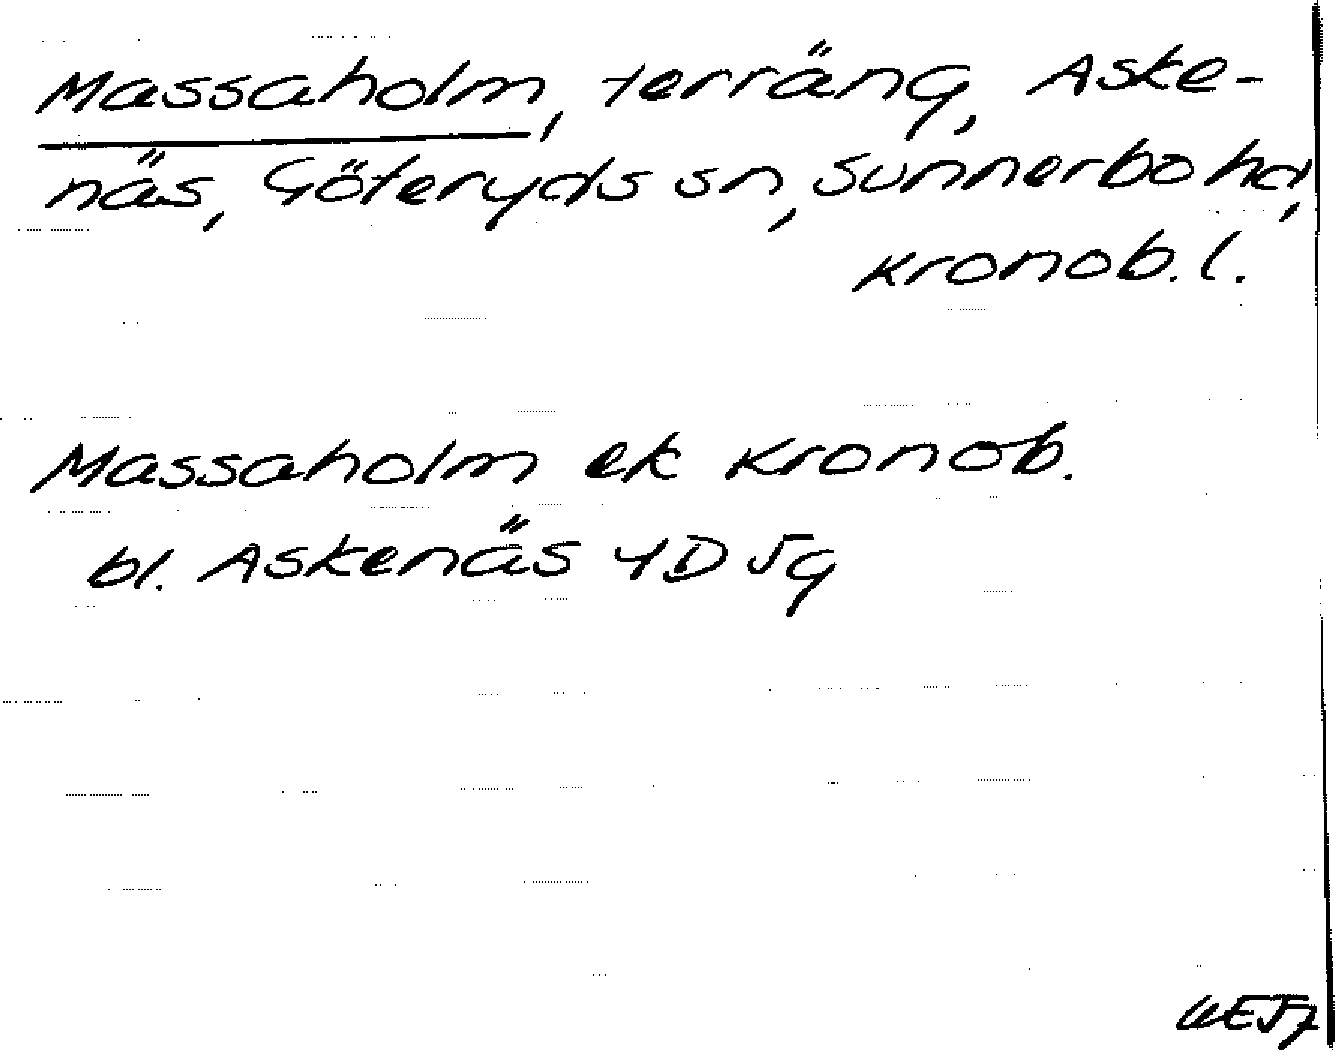 Massaholm, terräng, Aske-
näs, Göteryds sn, Sunnerbo hd,
Kronob. l.
Massaholm ek Kronob.
bl. Askenäs 4D 5g